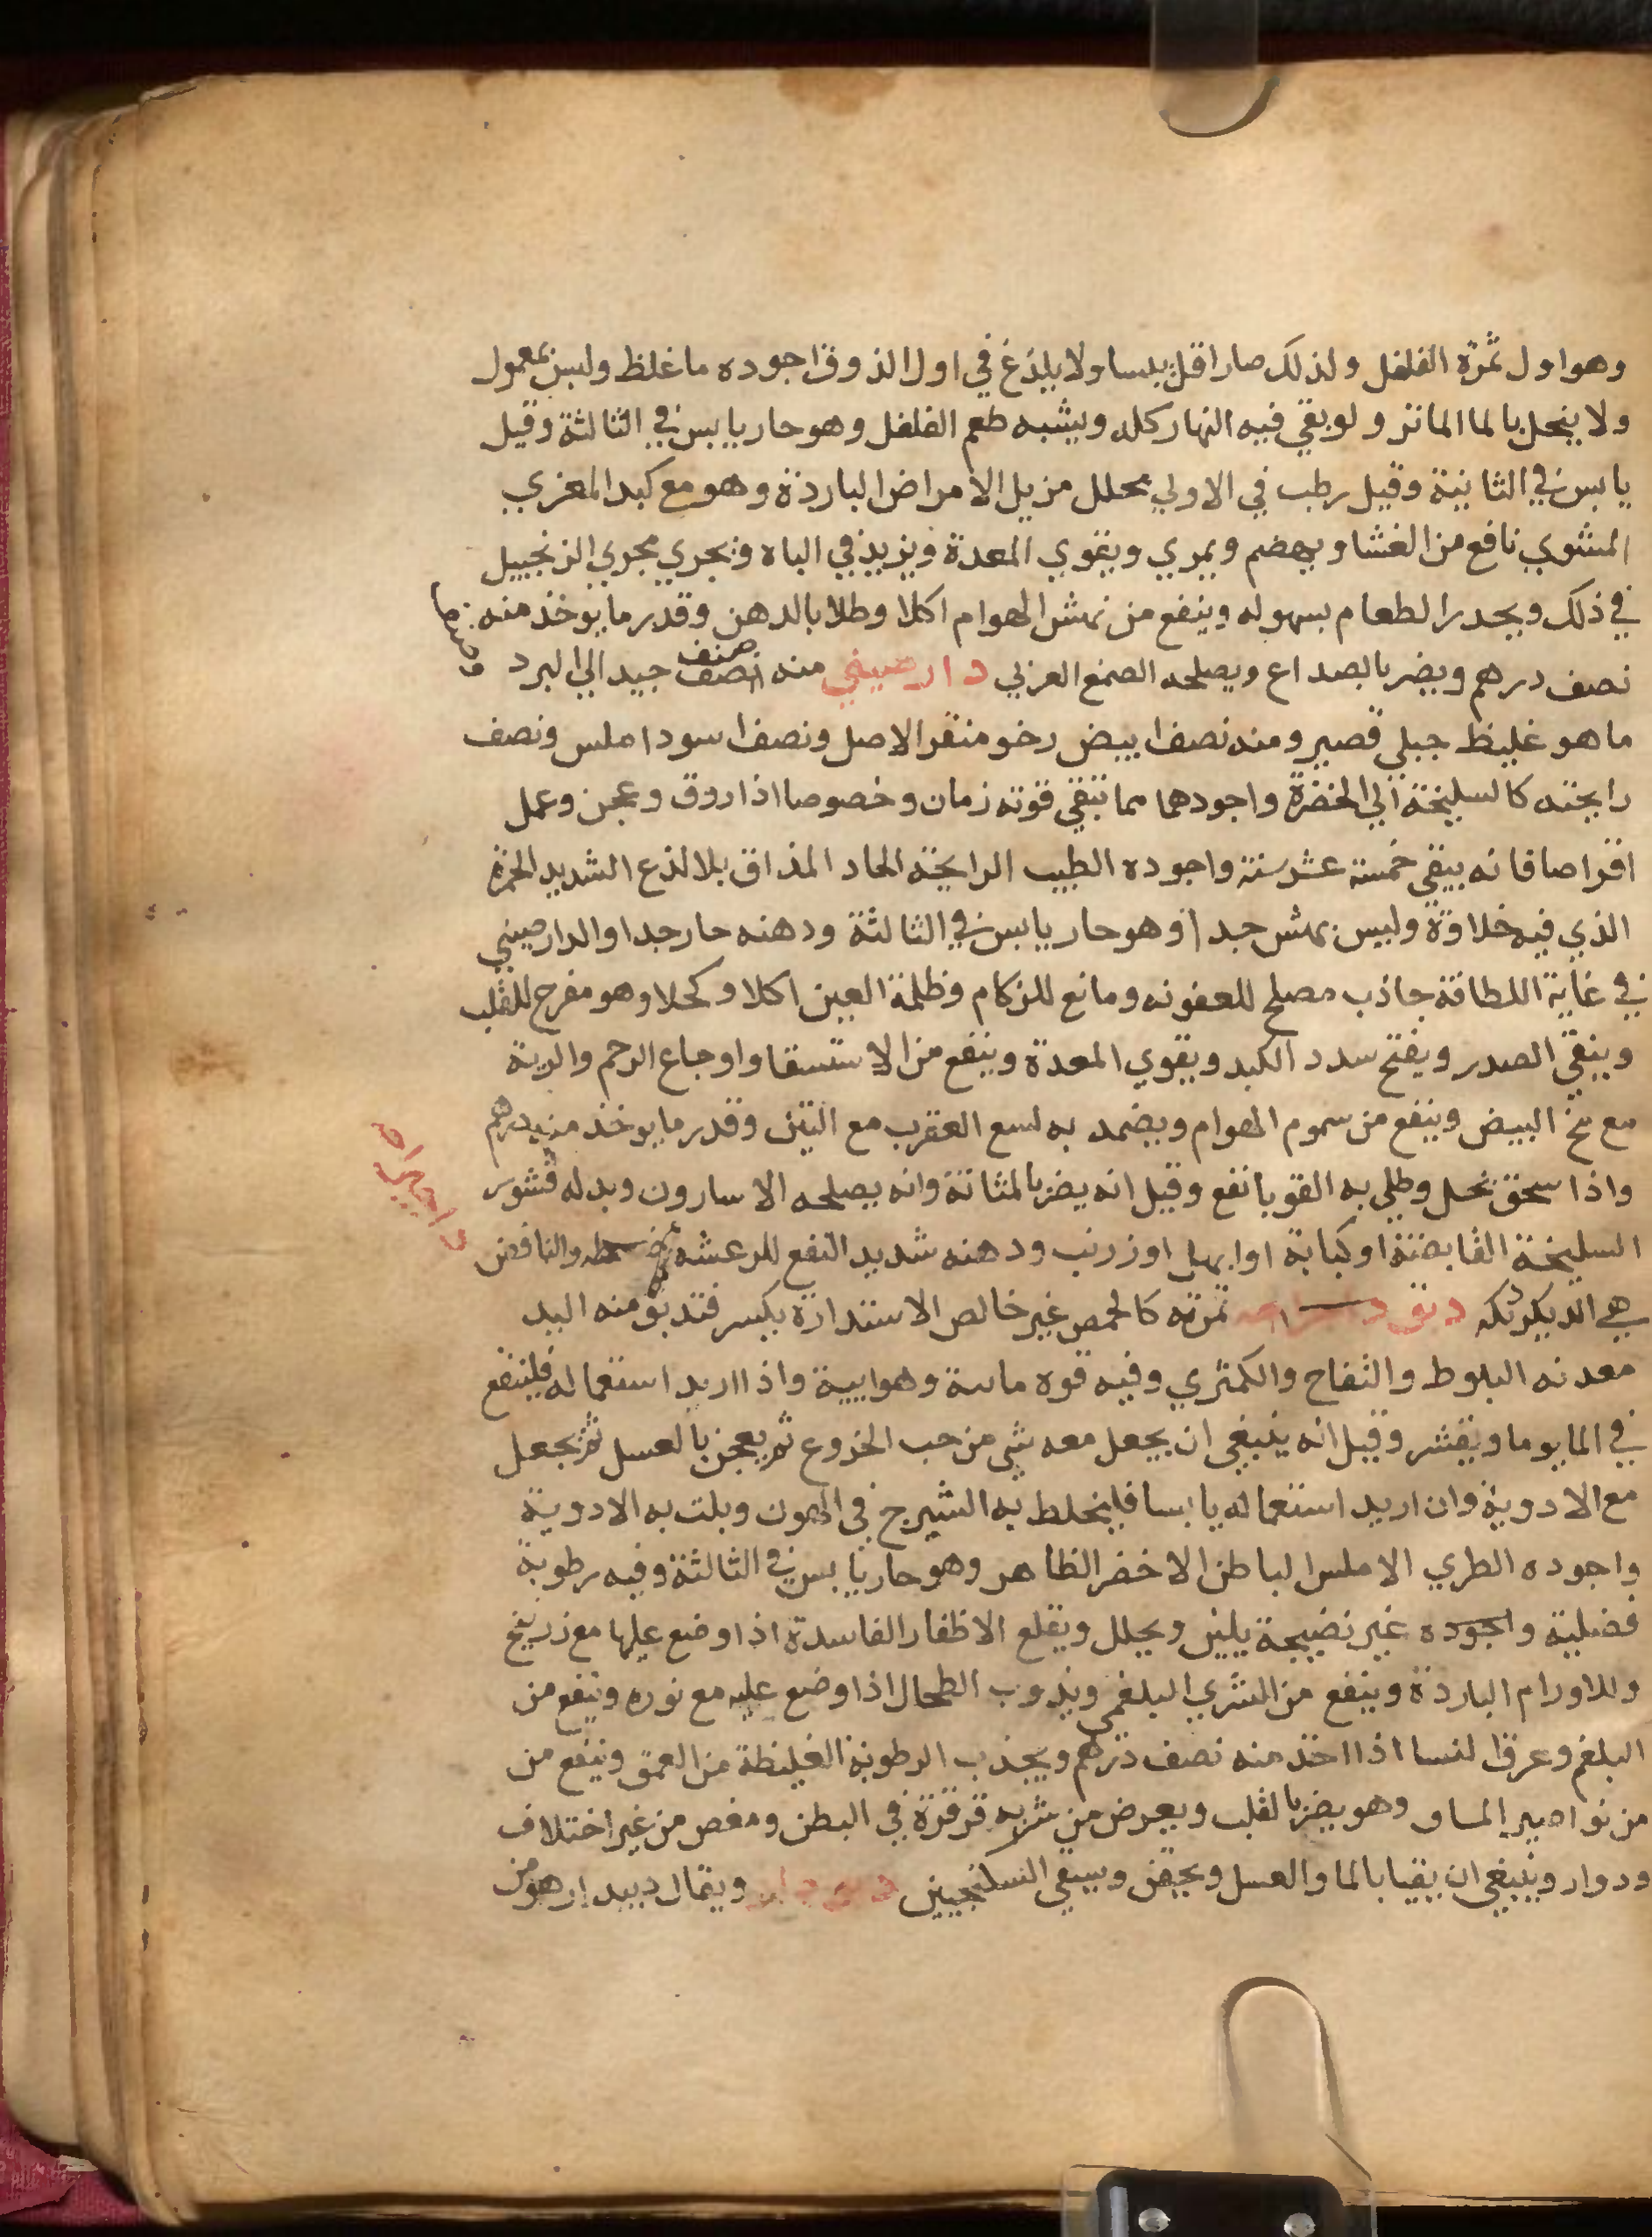 وهو اول ثمرة الفلفل ولذلك صار اقل يبسا ولا يلذع في اول الذوق اجوده ما غلظ وليس بمعمول
ولا ينحل بالما الماتر ولو بقي فيه النهار كله ويشبه طعم الفلفل وهو حار يابس في الثالثة وقيل
يابس في الثانية وقيل رطب في الاولي محلل مزيل الامراض الباردة وهو مع كبد المعزي
المشوي نافع من الغشا ويهضم ويمري ويقوي المعدة ويزيد في الباه ويجري مجري الزنجبيل
في ذلك ويحدر الطعام بسهوله وينفع من نهش الهوام اكلا وطلا بالدهن وقدر ما يوخذ منه
نصف درهم ويضر بالصداع ويصلحه الصمغ العربي دارصيني منه نصف صنف جيد الي البرد
ما هو غليظ جبلي قصير ومنه نصف ابيض رخو منفر الاصل ونصف اسود املس ونصف
رايحته كالسليخة الي الخضرة واجودهما مما تبقي قوته زمان وخصوصا اذا روق وعجن وعمل
اقراصا فانه يبقي خمسة عشر سنة واجوده الطيب الرايحة الحاد المذاق بلا لذع الشديد الحمرة
الذي فيه حلاوة وليس بهش جدا وهو حار يابس في الثالثة ودهنه حار جدا والدارصيني
في غاية اللطافة جاذب مصلح للعفونه ومانع للزكام وظلمة العين اكلا وكحلا وهو مفرح للقلب
وينقي الصدر ويفتح سدد الكبد ويقوي المعدة وينفع من الاستسقا واوجاع الرحم والرية
مع مخ البيض وينفع من سموم الهوام ويضمد به لسع العقرب مع التين وقدر ما يوخذ منه درهم
واذا سحق بخل وطلي به القوبا نفع وقيل انه يضر بالمثانة وانه يصلحه الاسارون وبدله قشور
السليخة القابضة او كبابة او ابهل او زرنب ودهنه شديد النفع للرعشه والنافض
هي الديكرتكه ثمرته كالحمص غير خالص الاستدارة يكسر فتدبق منه اليد
معدنه البلوط والتفاح والكمثري وفيه قوه مايية وهوايية واذا اريد استعماله فلينقع
في الما يوما ويقشر وقيل انه ينبغي ان يجعل معه شي من حب الخروع ثم يعجن بالعسل ثم يجعل
مع الادوية وان اريد استعماله يابسا فليخلط به الشيرج في الهون ويلت به الادوية
واجوده الطري الاملس الباطن الاخضر الظاهر وهو حار يابس في الثالثة وفيه رطوبة
فضلية واجوده غير نضيجة يلين ويحلل ويقلع الاظفار الفاسدة اذا وضع عليها مع زرنيخ
والاورام الباردة وينفع من الشري البلغمي ويذوب الطحال اذا وضع عليه مع نوره وينفع من
البلغم وعرق النسا اذا اخذ منه نصف درهم ويجذب الرطوبة الغليظة من العمق وينفع من
من نواصير الماو وهو يضر بالقلب ويعرض من شربه قرقرة في البطن ومغص من غير اختلاف
ودوار وينبغي ان يقيا بالما والعسل ويحقن ويسقي السكنجبين ويقال ديبدار هو من